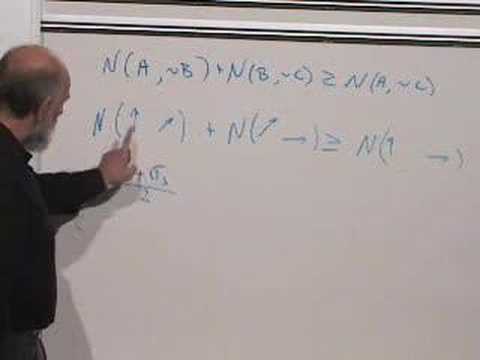 N(A,~B)+N(B,~C) ≥ N(A,~C)
N(↑ ↗) + N(↗ →) ≥ N(↑ →)
+σ₃
2